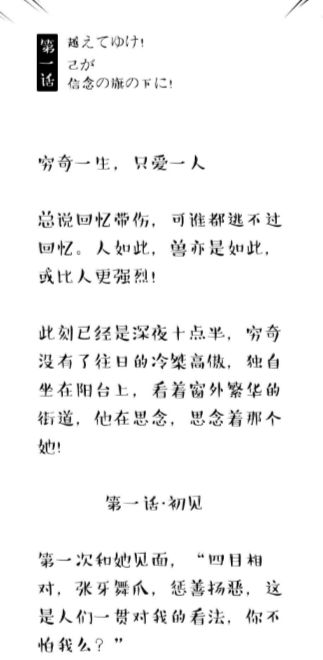 第一话
越えてゆけ!
己が
信念の旗の下に!
穷奇一生，只爱一人
总说回忆带伤，可谁都逃不过
回忆。人如此，兽亦是如此，
或比人更强烈!
此刻已经是深夜十点半，穷奇
没有了往日的冷桀高傲，独自
坐在阳台上，看着窗外繁华的
街道，他在思念，思念着那个
她!
第一话·初见
第一次和她见面，“四目相
对，张牙舞爪，惩善扬恶，这
是人们一贯对我的看法，你不
怕我么？”